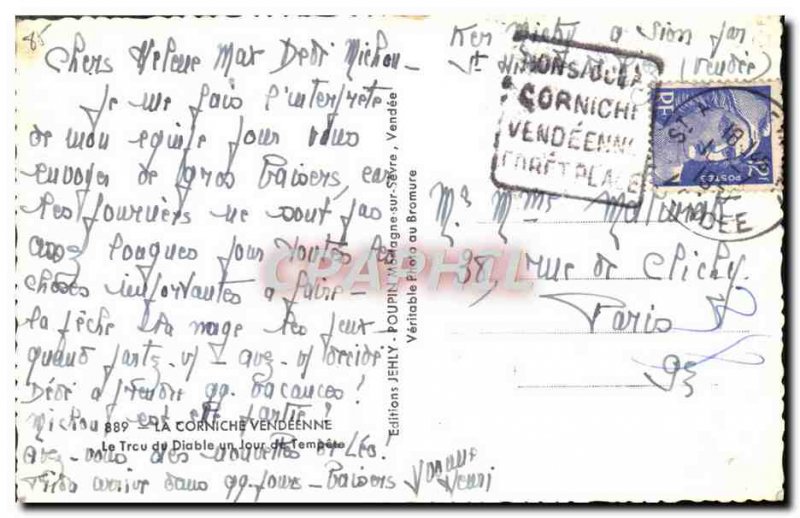 85
Chers Helene Max Dédé Michou -
Je me fais l'interprète
de mon équipe pour vous
envoyer de gros baisers, car
les journées ne sont pas
assez longues pour toutes les
choses importantes à faire -
la pêche la nage les jeux -
quand partez-v/ avez-v/ décidé
Dédé à prendre qq. vacances!
Michou est elle partie?
avez-vous des nouvelles de Léo!
arrive dans qq. jours - Baisers
Henri
889 - LA CORNICHE VENDÉENNE
Le Trou du Diable un Jour de Tempête
Editions JEHLY - POUPIN Mortagne-sur-Sèvre, Vendée
Véritable Photo au Bromure
Ker Michy à Sion par
St (Vendée)
CORNICHE
VENDÉENNE
FORÊT PLAGE
RF
POSTES
12
ST
18
DÉE
Mr Mme
38, rue de Clichy
Paris
9e
CPAPHIL